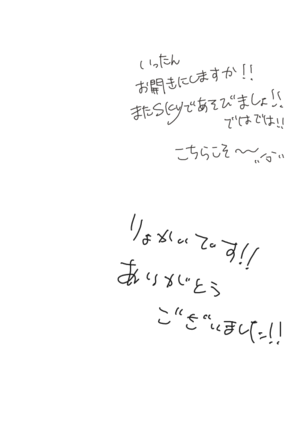 いったん
お開きにしますか!!
またSkyであそびましょ!!
ではでは!!
こちらこそ〜〜
りょかいです!!
ありがとう
ございました!!